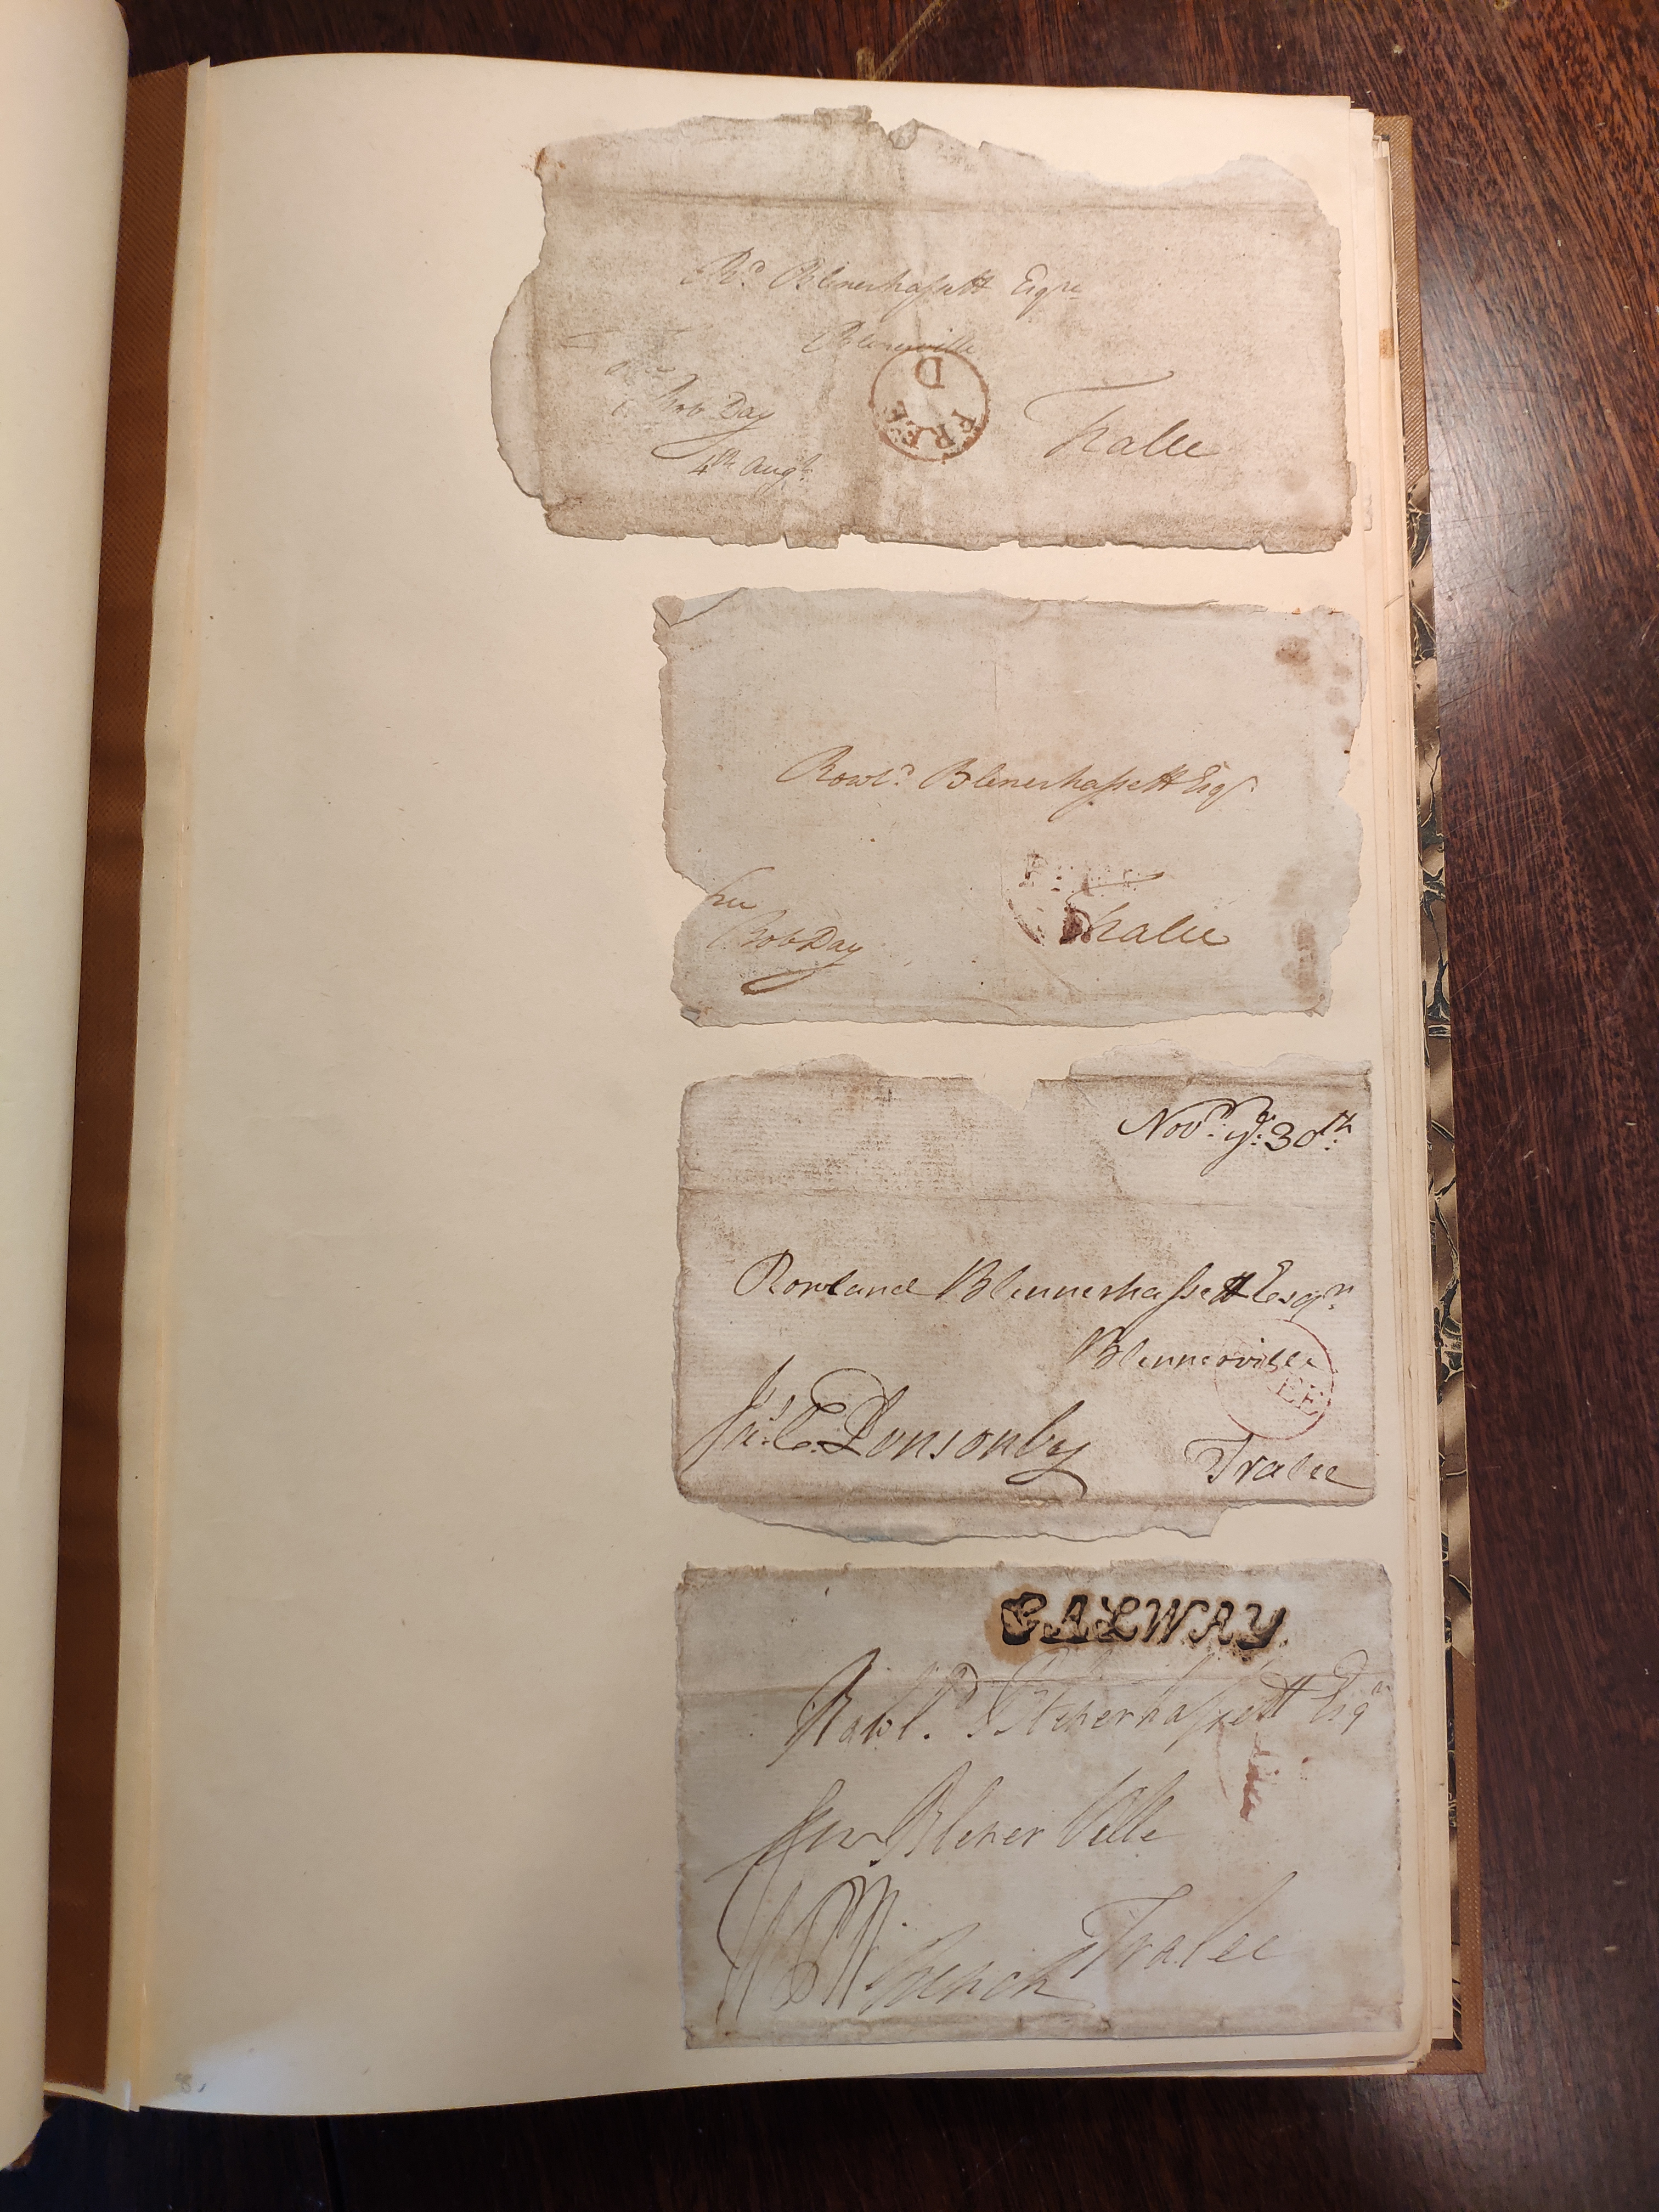 Rd. Blenerhassett Esqre
Blenerville
Free
Rob Day
4th Augt.
D
FREE
Tralee
Rowld. Blenerhassett Esqr
free
Rob Day
Tralee
Novr. ye. 30th.
Rowland Blennerhassett Esqr.
Blennerville
EE
Jas. C. Ponsonby
Tralee
GALWAY
Rowld. Blenerhassett Esqr
Blener Ville
Tralee
French
8.